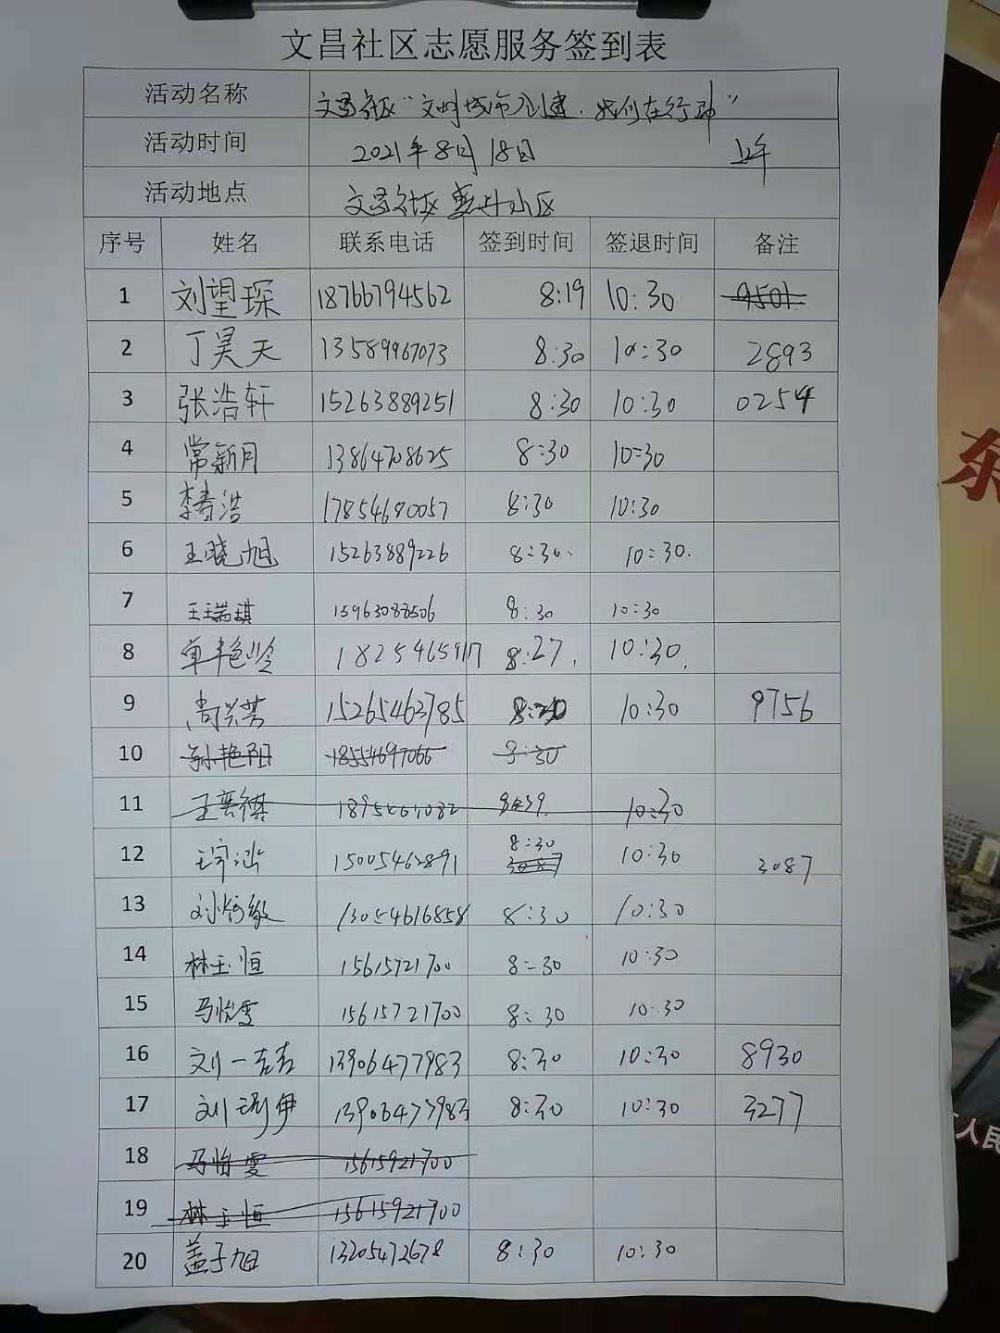 文昌社区志愿服务签到表
活动名称 文昌社区“文明城市创建,我们在行动”
活动时间 2021年8月18日 上午
活动地点 文昌社区 小区
序号 姓名 联系电话 签到时间 签退时间 备注
1 刘望琛 18766794562 8:19 10:30 9501
2 丁昊天 13589967073 8:30 10:30 2893
3 张浩轩 15263889251 8:30 10:30 0254
4 常新月 13864708625 8:30 10:30
5 李春浩 17854680057 8:30 10:30
6 王晓旭 15263889226 8:30. 10:30.
7 王瑞琪 15963088506 8:30 10:30
8 18254465917 8:27. 10:30.
9 尚兴芳 15265463785 8:30 10:30 9756
10 孙艳阳 18554697066 8:30
11 王奕祺 8:39 10:30
12 15005462891 8:30 3087 10:30 3087
13 13054616858 8:30 10:30
14 林玉恒 15615721700 8:30 10:30
15 马怡雯 15615721700 8:30 10:30
16 刘一吉吉 13906477983 8:30 10:30 8930
17 刘 伊 13906477983 8:30 10:30 3277
18 马怡雯 15615921700
19 林玉恒 15615921700
20 盖子旭 13205472678 8:30 10:30
东
人民